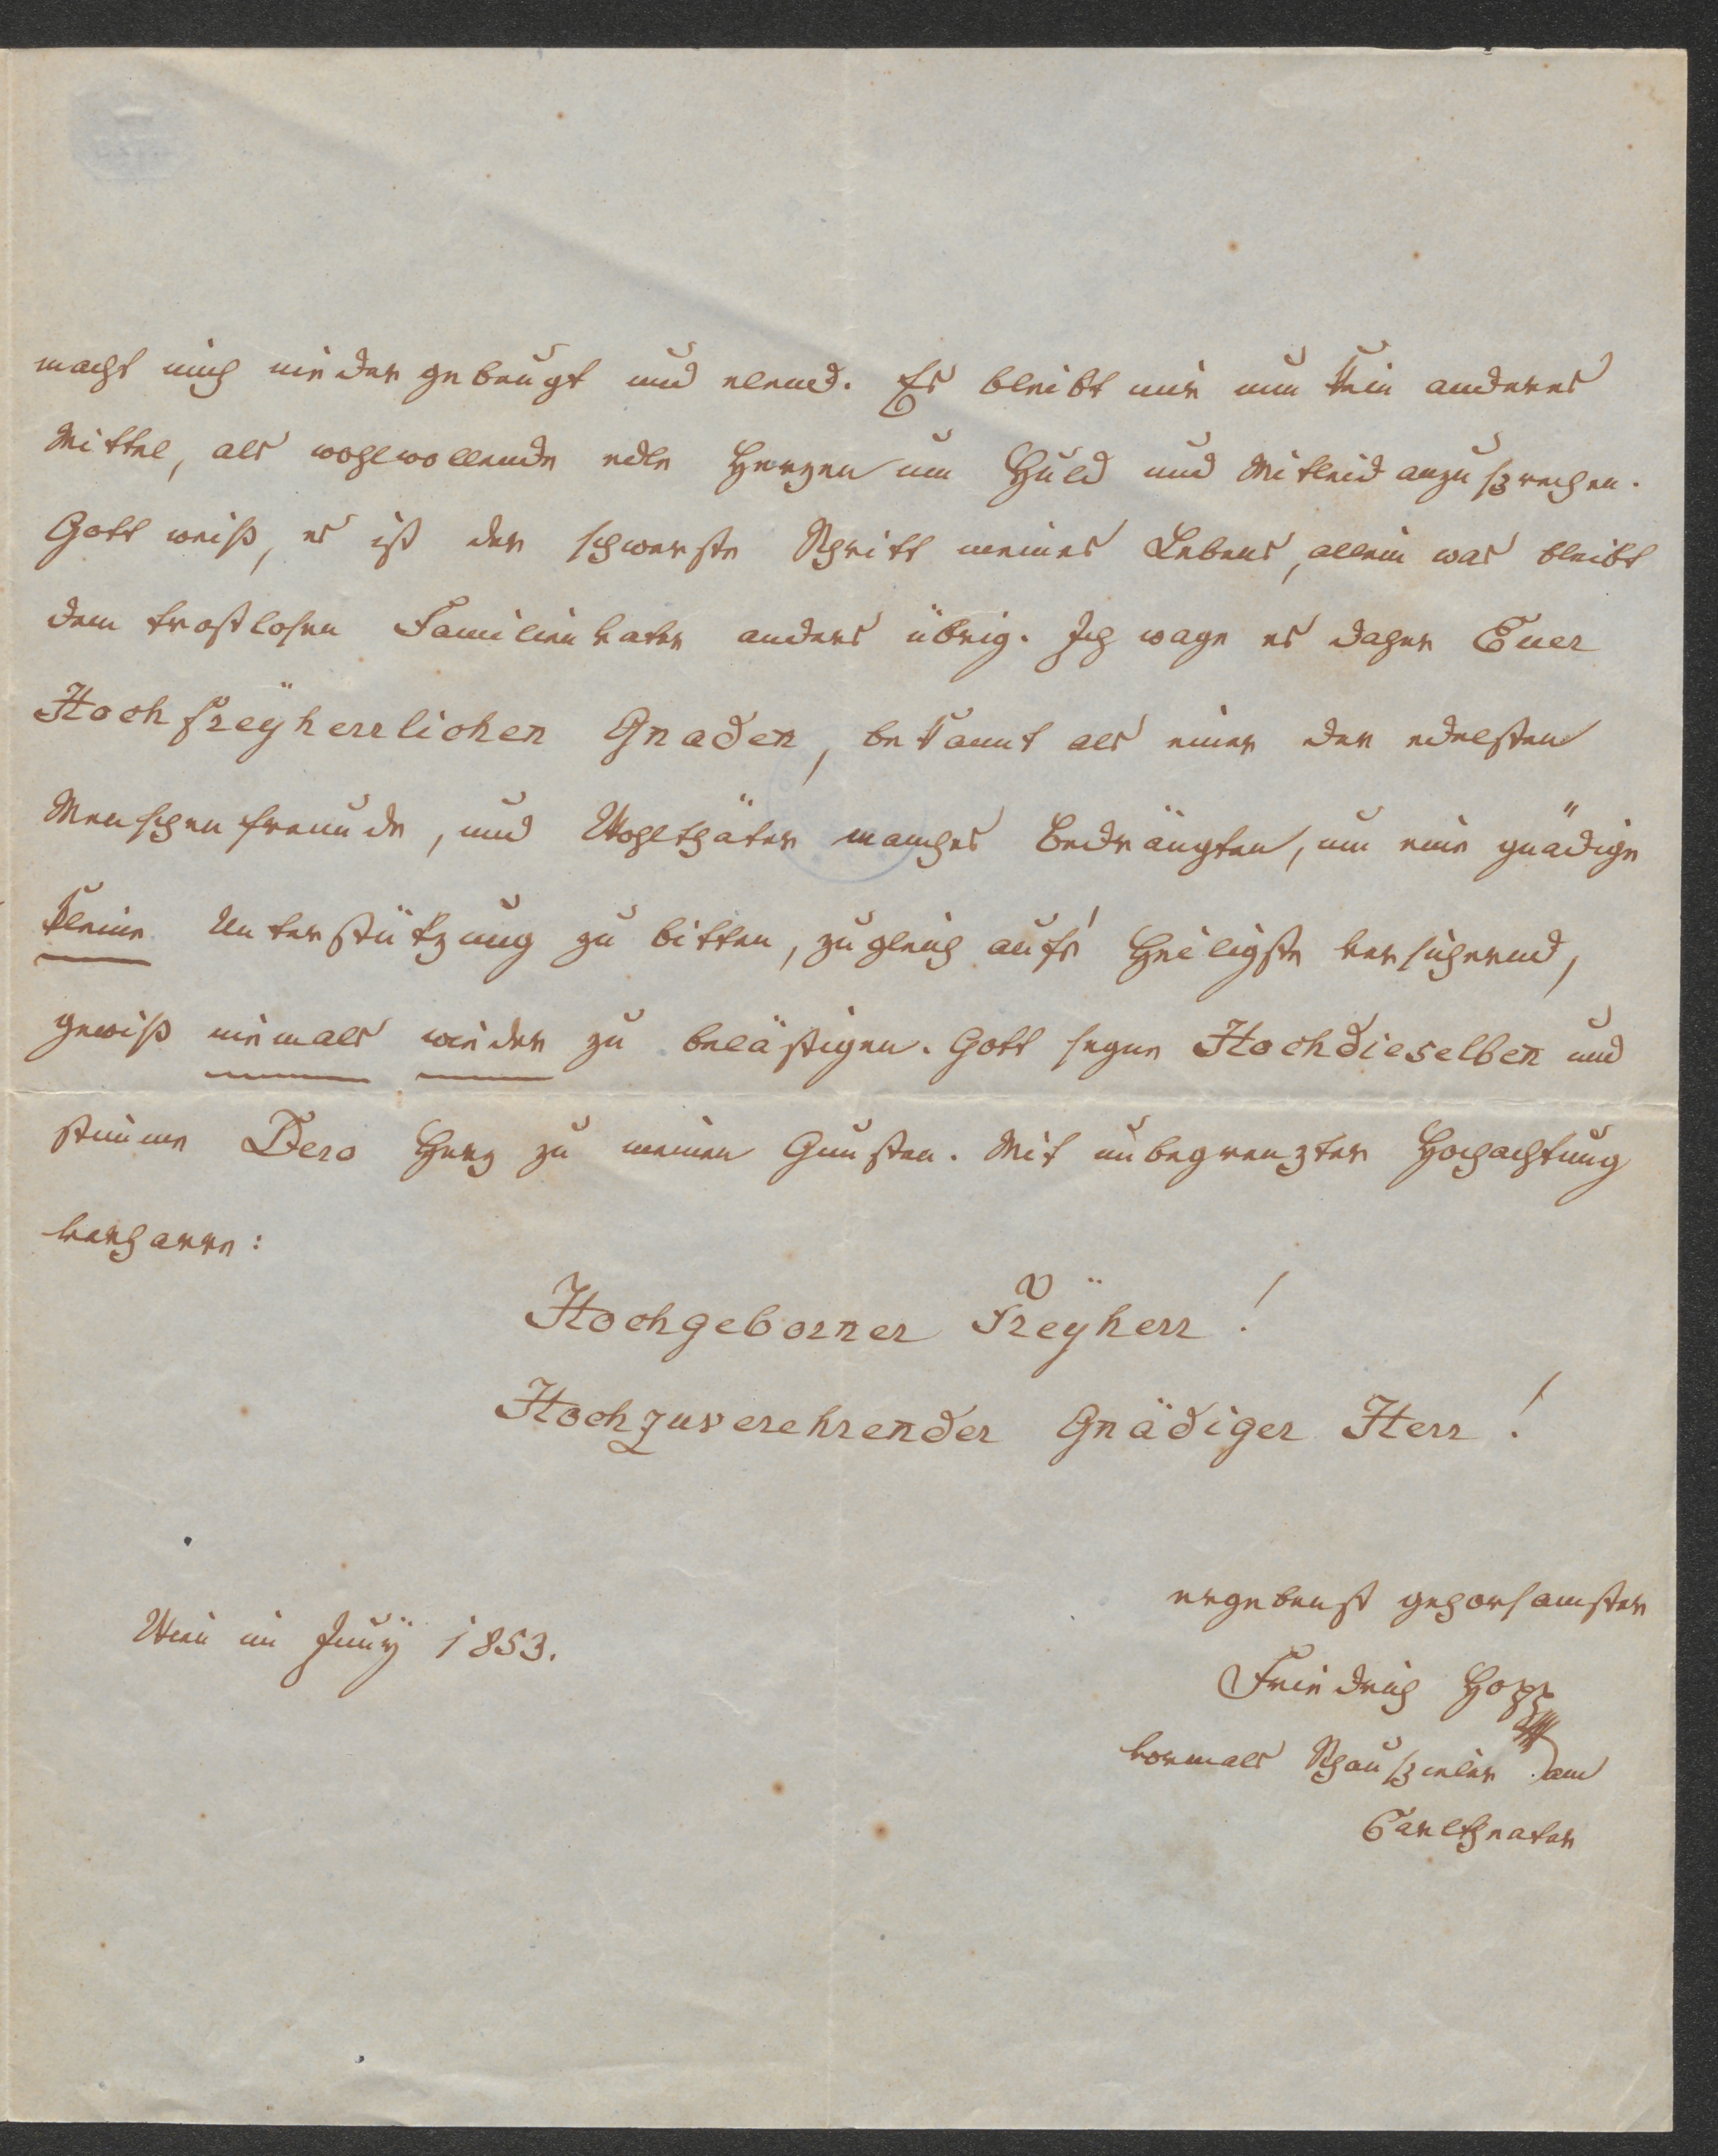 macht mich niedergebeugt und elend. Es bleibt mir nun kein anderes
Mittel, als wohlwollende edle Herzen um Huld und Mitleid anzusprechen.
Gott weiß, es ist der schwerste Schritt meines Lebens, allein was bleibt
dem trostlosen Familienvater anders übrig. Ich wage es daher Euer
Hochfreÿherrlichen Gnaden, bekannt als einer der edelsten
Menschenfreunde, und Wohlthäter manches Bedrängten, um eine gnädige
kleine Unterstützung zu bitten, zugleich auf's Heiligste versichernd,
gewiß niemals wieder zu belästigen. Gott segne Hochdieselben und
stimme Dero Herz zu meinen Gunsten. Mit unbegrenzter Hochachtung
verharre:
Hochgeborner Freÿherr!
Hochzuverehrender Gnädiger Herr!
ergebenst gehorsamster
Wien im Junÿ 1853.
Friedrich Hopp
vormals Schauspieler am
Carltheater